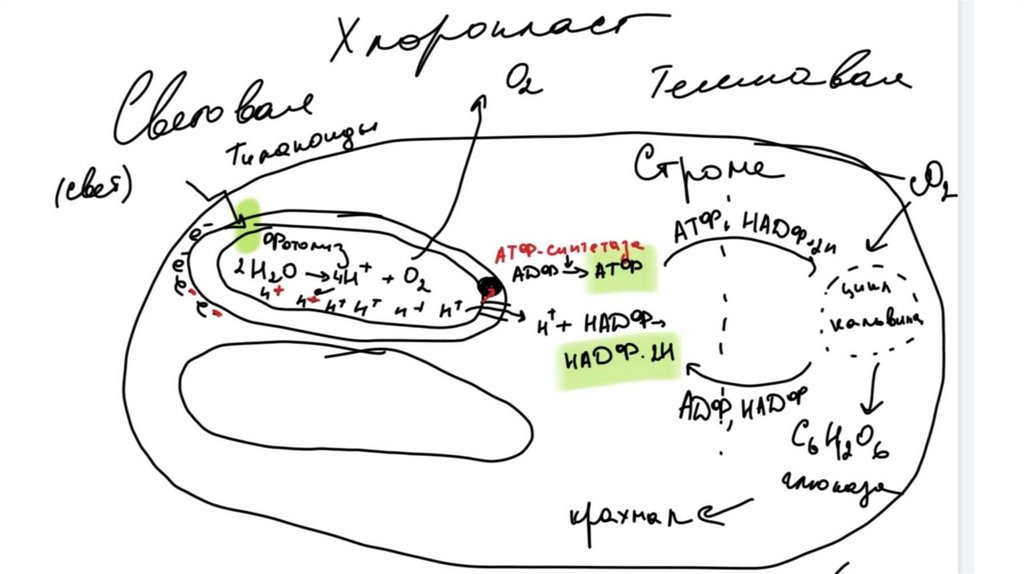 Хлоропласт
Световая
Темновая
O2
Тилакоиды
(свет)
Строме
CO2
Фотолиз
2H2O → 4H+ + O2
e-
e-
e-
e-
H+ H+ H+ H+ H+ H+
АТФ-синтетаза
АДФ → АТФ
H+ + НАДФ →
НАДФ·2H
АТФ, НАДФ·2H
цикл
кальвина
АДФ, НАДФ
C6H2O6
глюкоза
крахмал